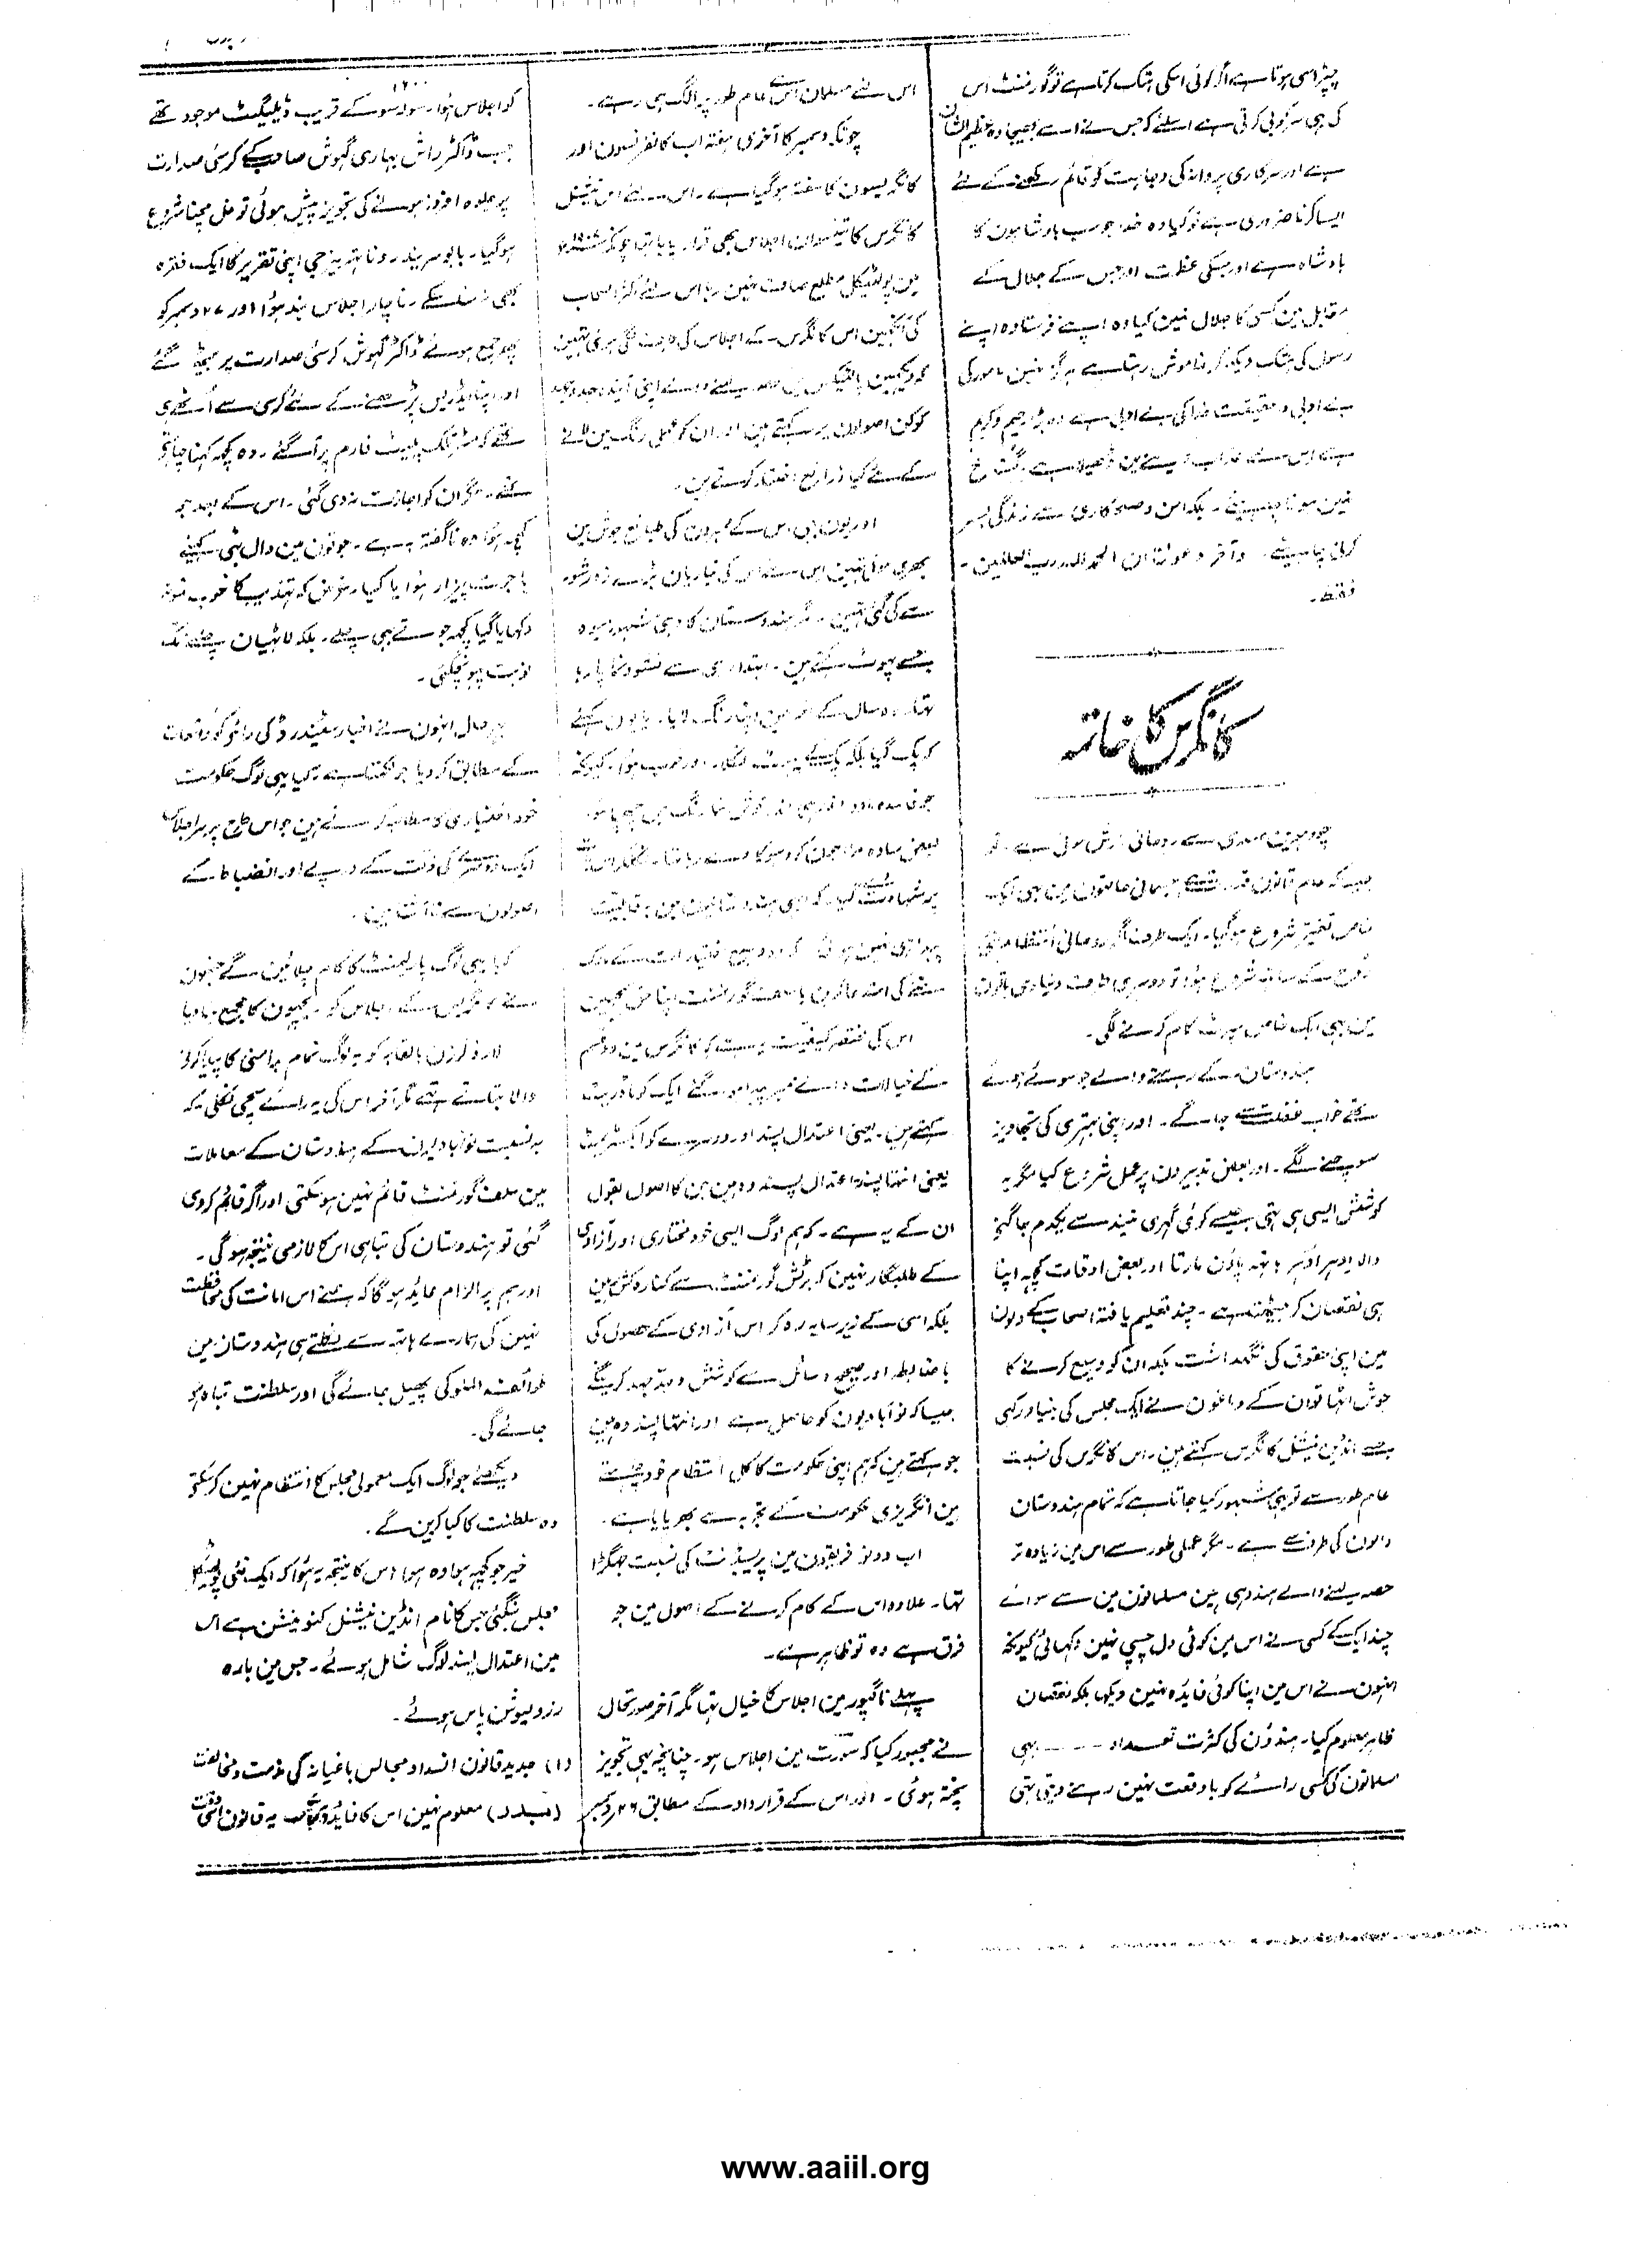 چپڑاسی ہوتا ہے اگر کوئی اسکی ہتک کرتا ہے تو گورنمنٹ اس
کی ہی سرکوبی کرتی ہے اسلئے کہ جس نے اسے بھیجا وہ عظیم الشان
ہے اور سرکاری پروانہ کی وجاہت کو قائم رکھنے کے لئے
ایسا کرنا ضروری ہے تو کیا وہ خدا جو سب بادشاہون کا
بادشاہ ہے اور جسکی عظمت اور جس کے جلال کے
مقابل مین کسی کا جلال نہین کیا وہ اپنے فرستادہ اپنے
رسول کی ہتک دیکھ کر خاموش رہتا ہے ہرگز نہین مامور کی
بے ادبی درحقیقت خدا کی بے ادبی ہے وہ بڑا رحیم و کریم
ہے اس لئے عذاب دینے مین ڈھیلا ہے گستاخ
نہین ہونا چاہیئے ۔ بلکہ امن و صلحکاری سے زندگی بسر
کرنی چاہیئے ۔ و آخر دعوانا ان الحمد للہ رب العلمین ۔
فقط ۔
کانگرس کا خاتمہ
چودہوین صدی سے روحانی بارش ہوئی ہے ۔ تو
جیسا کہ عام قانون قدرت ہے جسمانی حالتون مین بہی ایک
خاص تغیر شروع ہوگیا ۔ ایک طرف اگر روحانی انتظام
کے ساتھ شروع ہوا تو دوسری طرف دنیاوی باتون
مین بہی ایک خاص سپرٹ کام کرنے لگی ۔
ہندوستان کے رہنے والے جو سوئے ہوئے
تھے خواب غفلت سے جاگے ۔ اور اپنی بہتری کی تجاویز
سوچنے لگے ۔ اور بعض تدبیرون پر عمل شروع کیا مگر یہ
کوشش ایسی ہی تہی جیسے کوئی گہری نیند سے یکدم جاگنے
والا ادہر اودہر ہاتھ پاؤن مارتا اور بعض اوقات کچہ اپنا
ہی نقصان کر بیٹھتا ہے ۔ چند تعلیم یافتہ اصحاب کے دلون
مین اپنے حقوق کی نگہداشت بلکہ ان کو وسیع کرنے کا
جوش اٹہا تو ان کے دماغون نے ایک مجلس کی بنیاد رکہی
جسے انڈین نیشنل کانگرس کہتے ہین ۔ اس کانگرس کی نسبت
عام طور سے تو یہی مشہور کیا جاتا ہے کہ تمام ہندوستان
والون کی طرف سے ہے ۔ مگر عملی طور سے اس مین زیادہ تر
حصہ لینے والے ہندو ہی ہین مسلمانون مین سے سوائے
چند ایک کے کسی نے اس مین کوئی دل چسپی نہین دکہائی کیونکہ
انہون نے اس مین اپنا کوئی فایدہ نہین دیکہا بلکہ نقصان
ظاہر معلوم کیا ۔ ہندؤن کی کثرت تعداد ۔۔۔ ہی
مسلمانون کی کسی رائے کو با وقعت نہین رہنے دیتی تہی
اس لئے مسلمان اس سے عام طور پر الگ ہی رہے ۔
چونکہ دسمبر کا آخری ہفتہ اب کانفرنسون اور
کانگریسون کا ہفتہ ہوگیا ہے ۔ اس لئے اس نیشنل
کانگرس کا تیئیسوان اجلاس بھی قرار پایا تہا چونکہ
مین پولیٹیکل مطلع صاف نہین رہا اس لئے اکثر اصحاب
کی آنکھین اس کانگرس کے اجلاس کی طرف لگی ہوئی تہین
کہ دیکہین پالیٹیکس مین حصہ لینے والے اپنی آیندہ جدوجہد
کو کن اصولون پر رکہتے ہین اور ان کو عملی رنگ مین لانے
کے لئے کیا ذرائع اختیار کرتے ہین ۔
اور یون ہی اس کے ممبرون کی طبائع جوش مین
بھری ہوئی تہین اس لئے اس کی تیاریان بڑے زور شور
سے کی گئی تہین ۔ مگر ہندوستان کا وہی مشہور میوہ
جسے پہوٹ کہتے ہین ۔ ابتداء ہی سے نشو و نما پا رہا
تہا ۔ سال کے آخر مین اپنا رنگ لایا ۔ یا یون کہئے
کہ پک گیا بلکہ پک کے پہوٹ نکلا ۔ اور خوب ہوا ۔ کیونکہ
جو فاسد مادہ اندر ہی اندر
بعض سادہ مزاجون کو دہوکا دے رہا تہا ۔
کہ ابھی ہندوستانیون مین یہ قابلیت
پیدا ہی نہین ہوئی کہ وہ وسیع اختیارات کے
ملنے کی استدعا کرین یا سلف گورنمنٹ اپنا حق سمجہین
اس کی مختصر کیفیت یہ ہے کہ کانگرس مین دو قسم
کے خیالات والے ممبر پیدا ہو گئے ایک کو ماڈریٹ
کہتے ہین ۔ یعنی اعتدال پسند اور دوسرے کو اکسٹریمسٹ
یعنی انتہا پسند اعتدال پسند وہ ہین جن کا اصول بقول
ان کے یہ ہے ۔ کہ ہم لوگ ایسی خود مختاری اور آزادی
کے طلبگار نہین کہ برٹش گورنمنٹ سے کنارہ کش ہین
بلکہ اسی کے زیر سایہ رہ کر اس آزادی کے حصول کی
باضابطہ اور صحیح وسائل سے کوشش و جدوجہد کرینگے
جیسا کہ نو آبادیون کو حاصل ہے اور انتہا پسند وہ ہین
جو کہتے ہین کہ ہم اپنی حکومت کا کل انتظام خود چاہتے
ہین انگریزی حکومت کے تجربہ سے بھر پایا ہے ۔
اب دونو فریقون مین پریسیڈنٹ کی نسبت جہگڑا
تہا ۔ علاوہ اس کے کام کرنے کے اصول مین جو
فرق ہے وہ تو ظاہر ہے ۔
پہلے ناگپور مین اجلاس کا خیال تہا مگر آخر صورتحال
نے مجبور کیا کہ سورت مین اجلاس ہو ۔ چنانچہ یہی تجویز
پختہ ہوئی ۔ اور اس کے قرارداد کے مطابق ۲۶ دسمبر
کو اجلاس ہوا ۔ سولہ سو ۱۶۰۰ کے قریب ڈیلیگیٹ موجود تھے
جب ڈاکٹر راش بہاری گہوش صاحب کے کرسی صدارت
پر جلوہ افروز ہونے کی تجویز پیش ہوئی تو غل مچنا شروع
ہوگیا ۔ بابو سریندر ونا تہ بنرجی اپنی تقریر کا ایک فقرہ
بھی نہ سنا سکے ۔ ناچار اجلاس بند ہوا اور ۲۷ دسمبر کو
پھر جمع ہوئے ڈاکٹر گہوش کرسی صدارت پر بیٹھ گئے
اور اپنا ایڈریس پڑہنے کے لئے کرسی سے اُٹھے ہی
تھے کہ مسٹر تلک پلیٹ فارم پر آ گئے ۔ وہ کچہ کہنا چاہتے
تھے ۔ مگر ان کو اجازت نہ دی گئی ۔ اس کے بعد جو
کچہ ہوا وہ ناگفتہ بہ ہے ۔ جوتون مین دال بٹی کہئے
یا جوت پیزار ہوا یا کیا ۔ غرض کہ تہذیب کا خوب نمونہ
دکہایا گیا کچہ جوتے بہی چلے ۔ بلکہ لاٹہیان چلنے تک
نوبت پہونچگئی ۔
بہرحال انہون نے اخبار سٹینڈرڈ کی رائے کو واقعات
کے مطابق کر دیا جو لکہتا ہے کہ کیا یہی لوگ حکومت
خود اختیاری کا مطالبہ کرتے ہین جو اس طرح پر سر اجلاس
ایک دوسرے کی ذلت کے درپے اور انضباط کے
اصولون سے ناآشنا ہین ۔
کیا یہی لوگ پارلیمنٹ کا کام چلائین گے جنہون
نے کانگریس کے اجلاس کو کا مجمع بنا دیا
لارڈ کرزن بالقابہ کو یہ لوگ تمام بدامنی کا پیدا کرنے
والا بتاتے تہے مگر آخر اس کی یہ رائے سچی نکلی کہ
بہ نسبت نوآبادیون کے ہندوستان کے معاملات
مین سلف گورنمنٹ قائم نہین ہو سکتی اور اگر قائم کر دی
گئی تو ہندوستان کی تباہی اس کا لازمی نتیجہ ہوگی ۔
اور ہم پر الزام عائد ہوگا کہ ہم نے اس امانت کی محافظت
نہین کی ہمارے ہاتہ سے نکلتے ہی ہندوستان مین
طوائف الملوکی پھیل جائے گی اور سلطنت تباہ ہو
جائے گی ۔
دیکھئے جو لوگ ایک معمولی مجلس کا انتظام نہین کر سکتے
وہ سلطنت کا کیا کرین گے ۔
خیر جو کچہ ہوا وہ ہوا اس کا نتیجہ یہ ہوا کہ ایک نئی پولیٹیکل
مجلس بنگئی جس کا نام انڈین نیشنل کنونیشن ہے اس
مین اعتدال پسند لوگ شامل ہوئے ۔ جس مین بارہ
رزولیوشن پاس ہوئے ۔
(۱) جدید قانون انسداد مجالس باغیانہ کی مذمت و مخالفت
(بدر) معلوم نہین اس کا فایدہ کیا ہے یہ قانون اسی وقت
www.aaiil.org